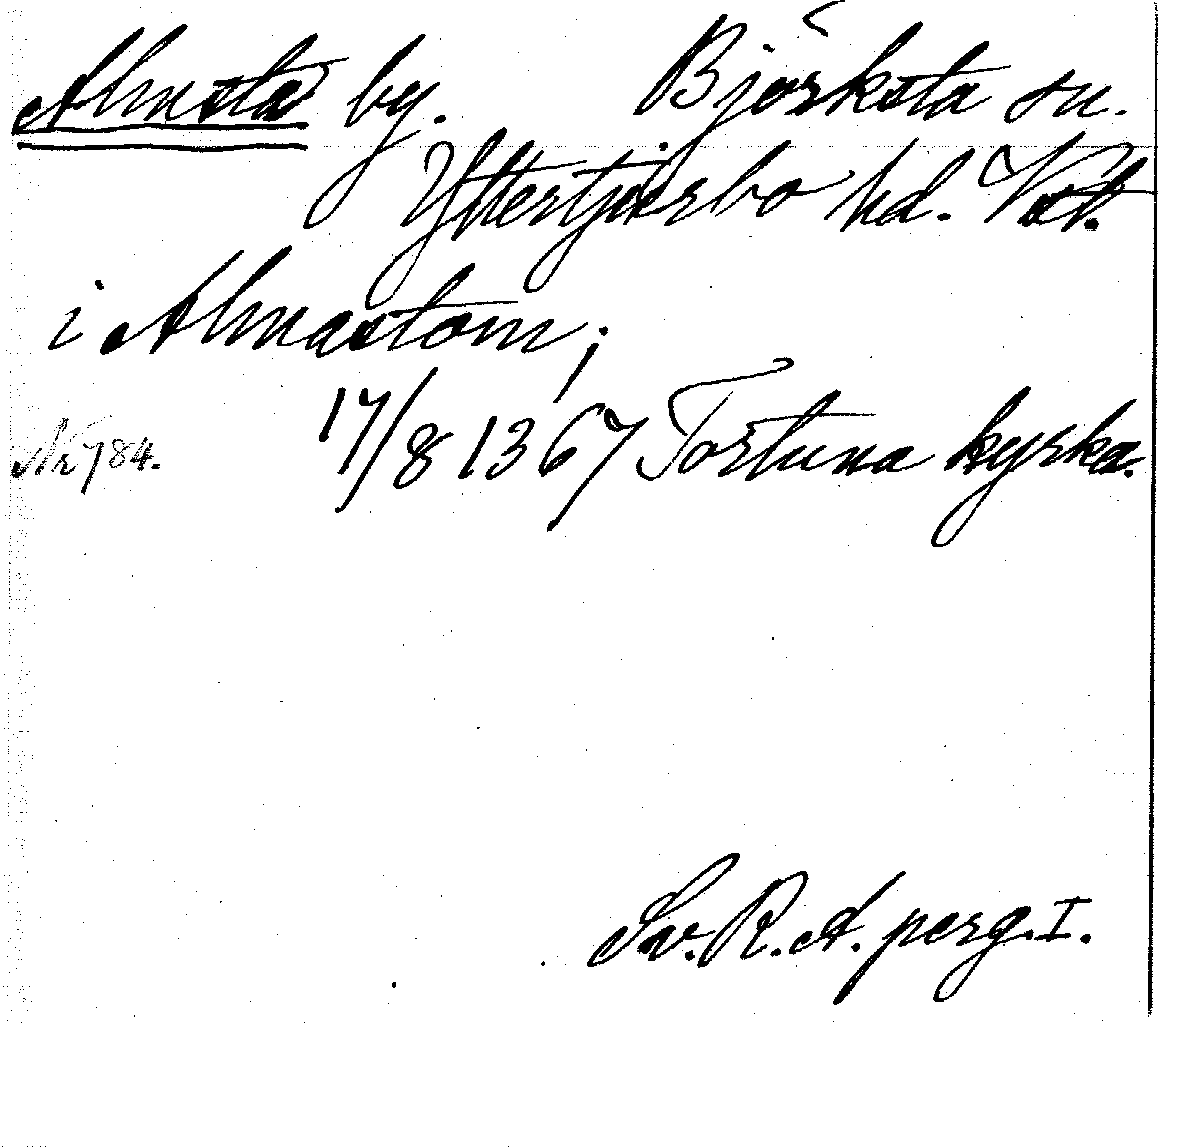 Almsta by. Björksta sn.
Yttertjurbo hd. Vstl.
i Almastom;
Nr 784. 17/8 1367 Tortuna kyrka.
Sv. R. A. perg. I.